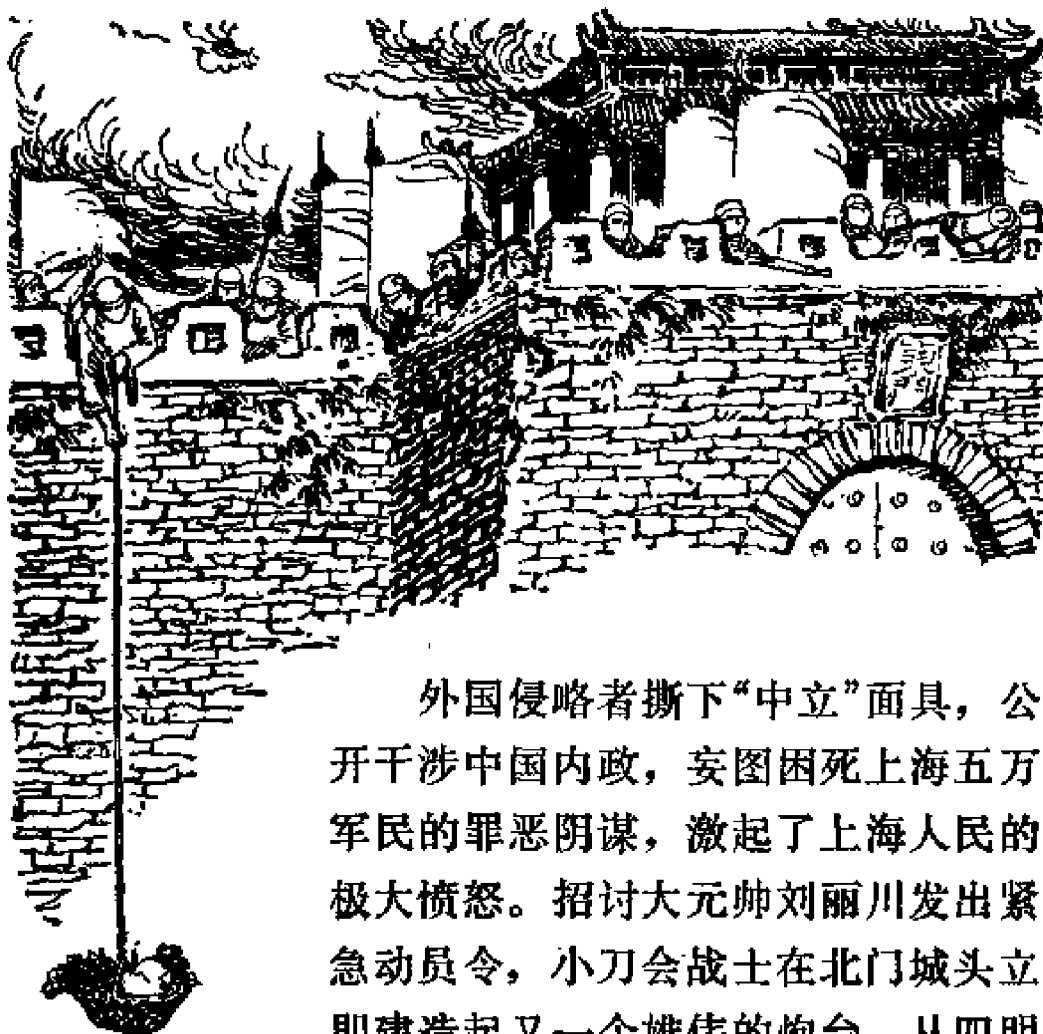 外国侵略者撕下“中立”面具，公
开干涉中国内政，妄图困死上海五万
军民的罪恶阴谋，激起了上海人民的
极大愤怒。招讨大元帅刘丽川发出紧
急动员令，小刀会战士在北门城头立
即建造起又一个雄伟的炮台 从四明